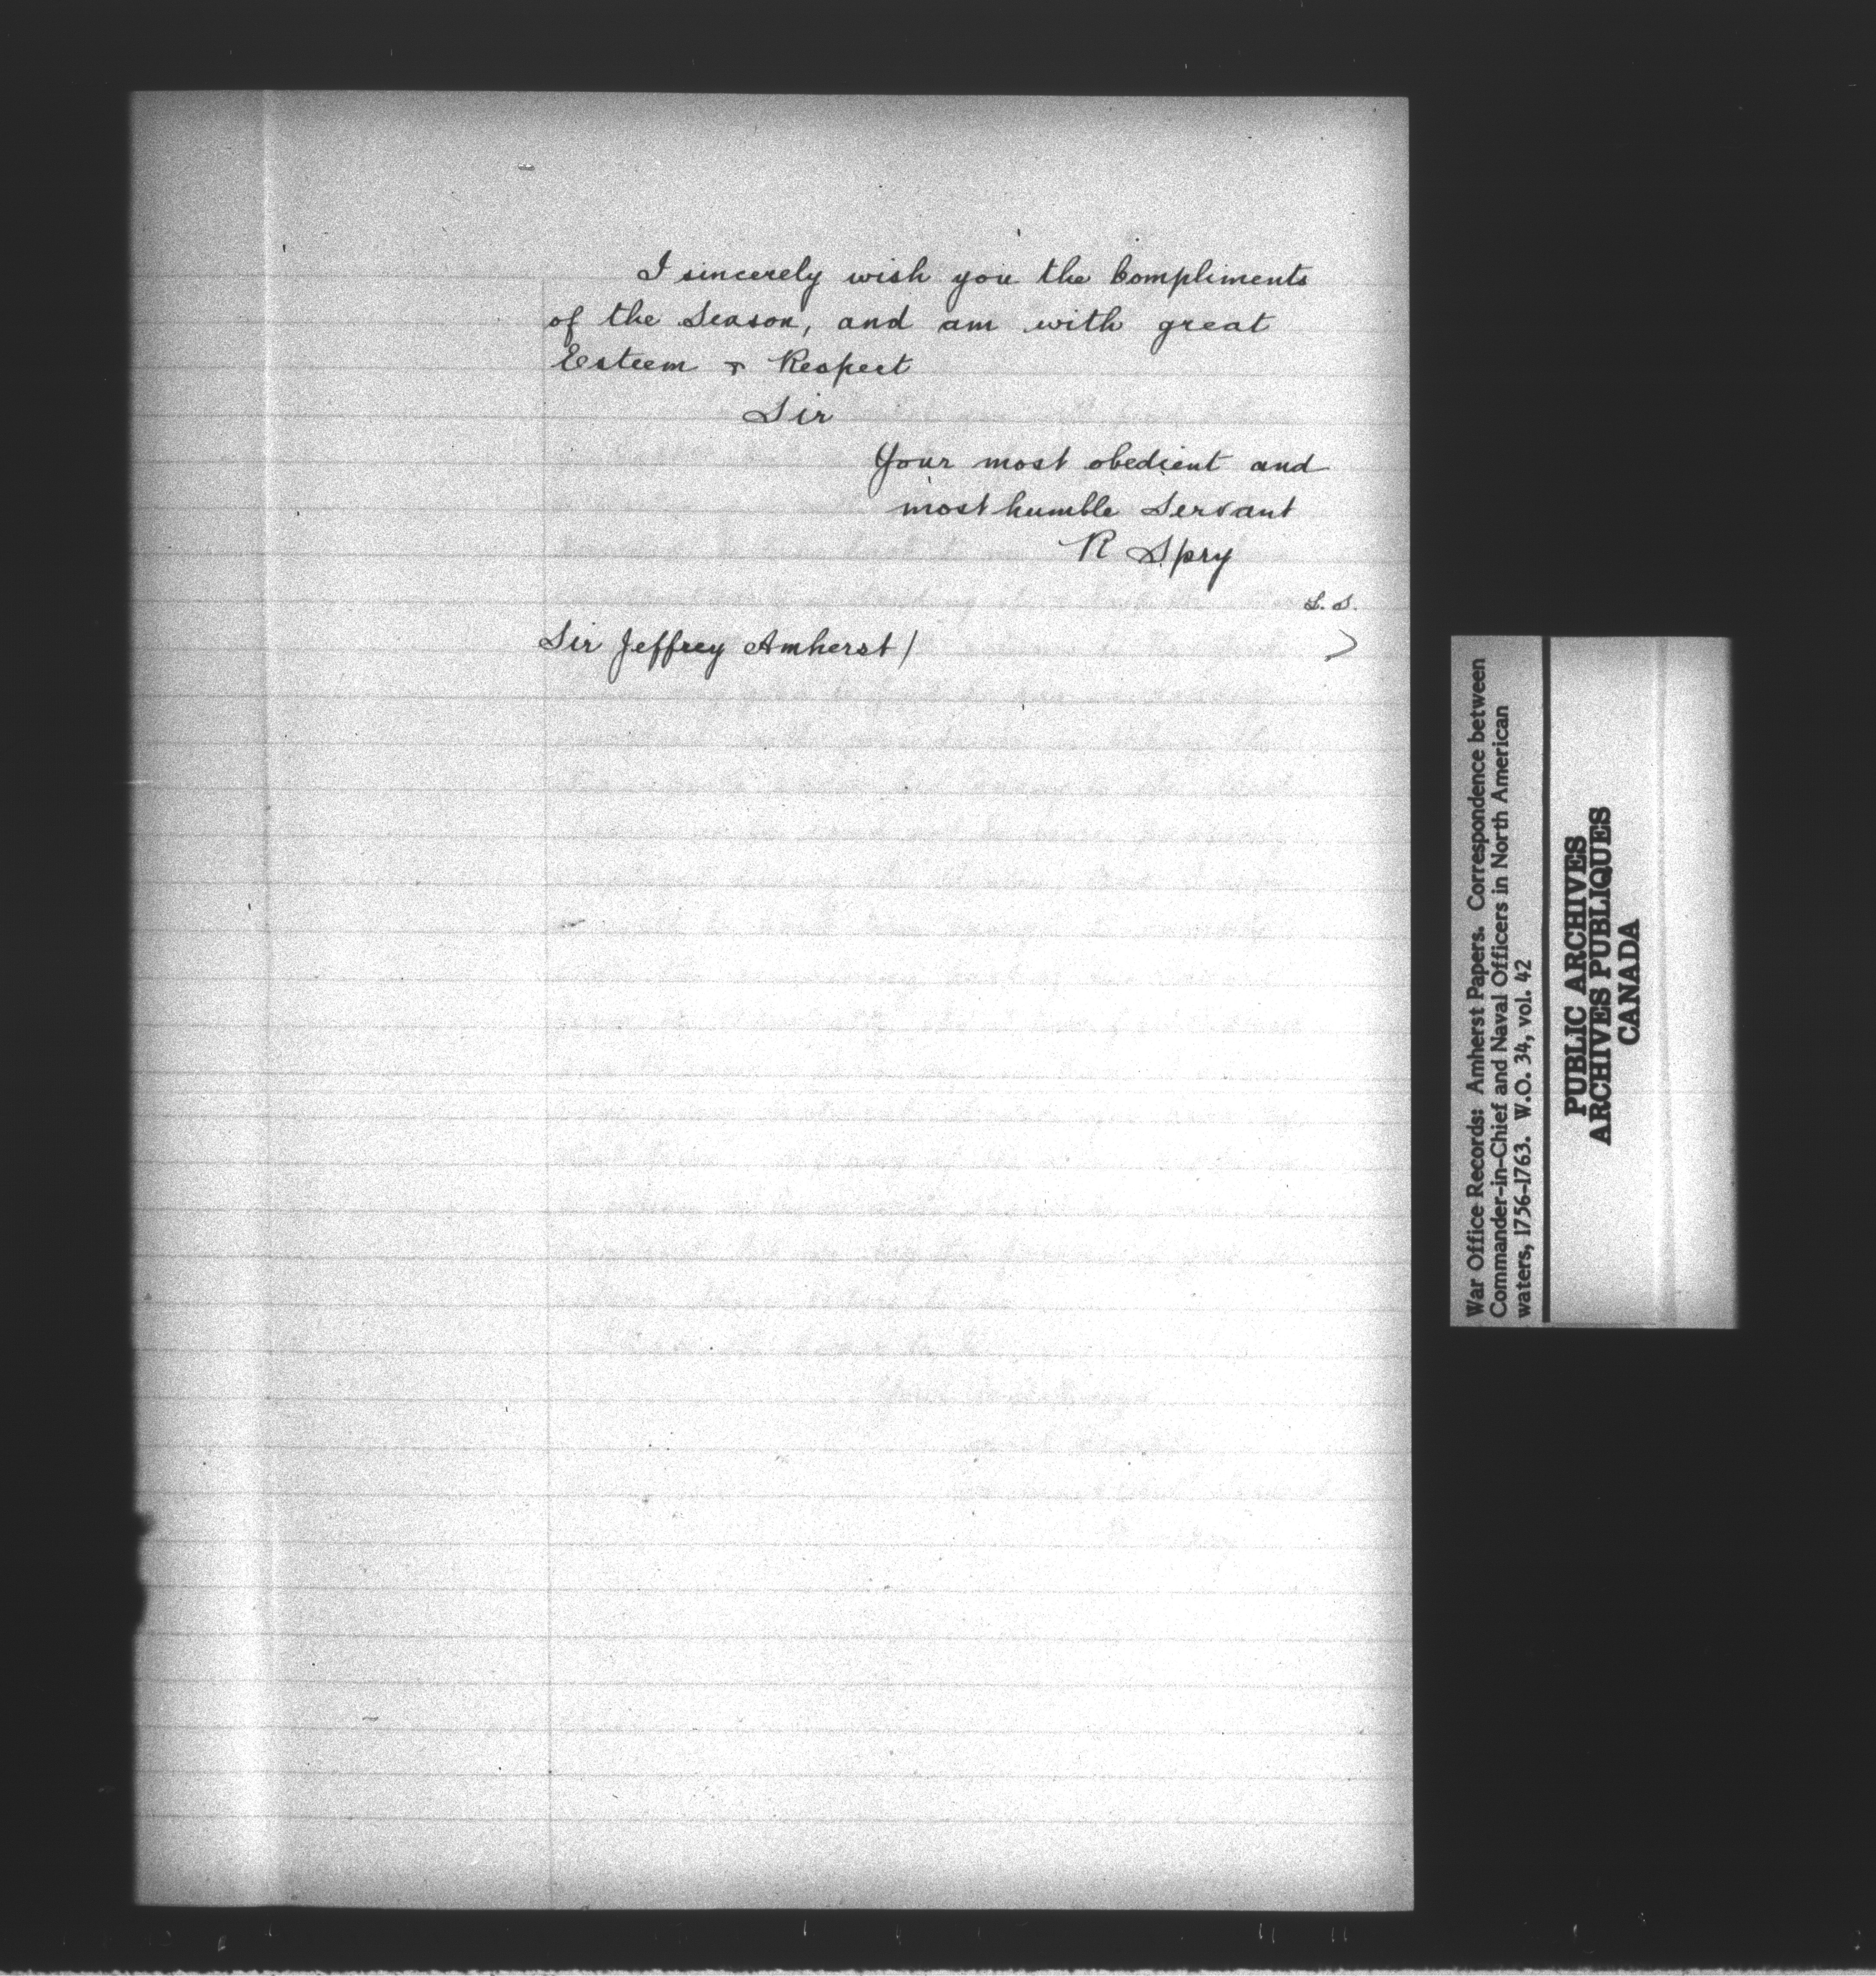 I sincerely wish you the Compliments
of the Season, and am with great
Esteem & Respect
Sir
Your most obedient and
most humble Servant
R Spry
L. S.
Sir Jeffrey Amherst /
War Office Records: Amherst Papers. Correspondence between
Commander-in-Chief and Naval Officers in North American
waters, 1756-1763. W.O. 34, vol. 42
PUBLIC ARCHIVES
ARCHIVES PUBLIQUES
CANADA